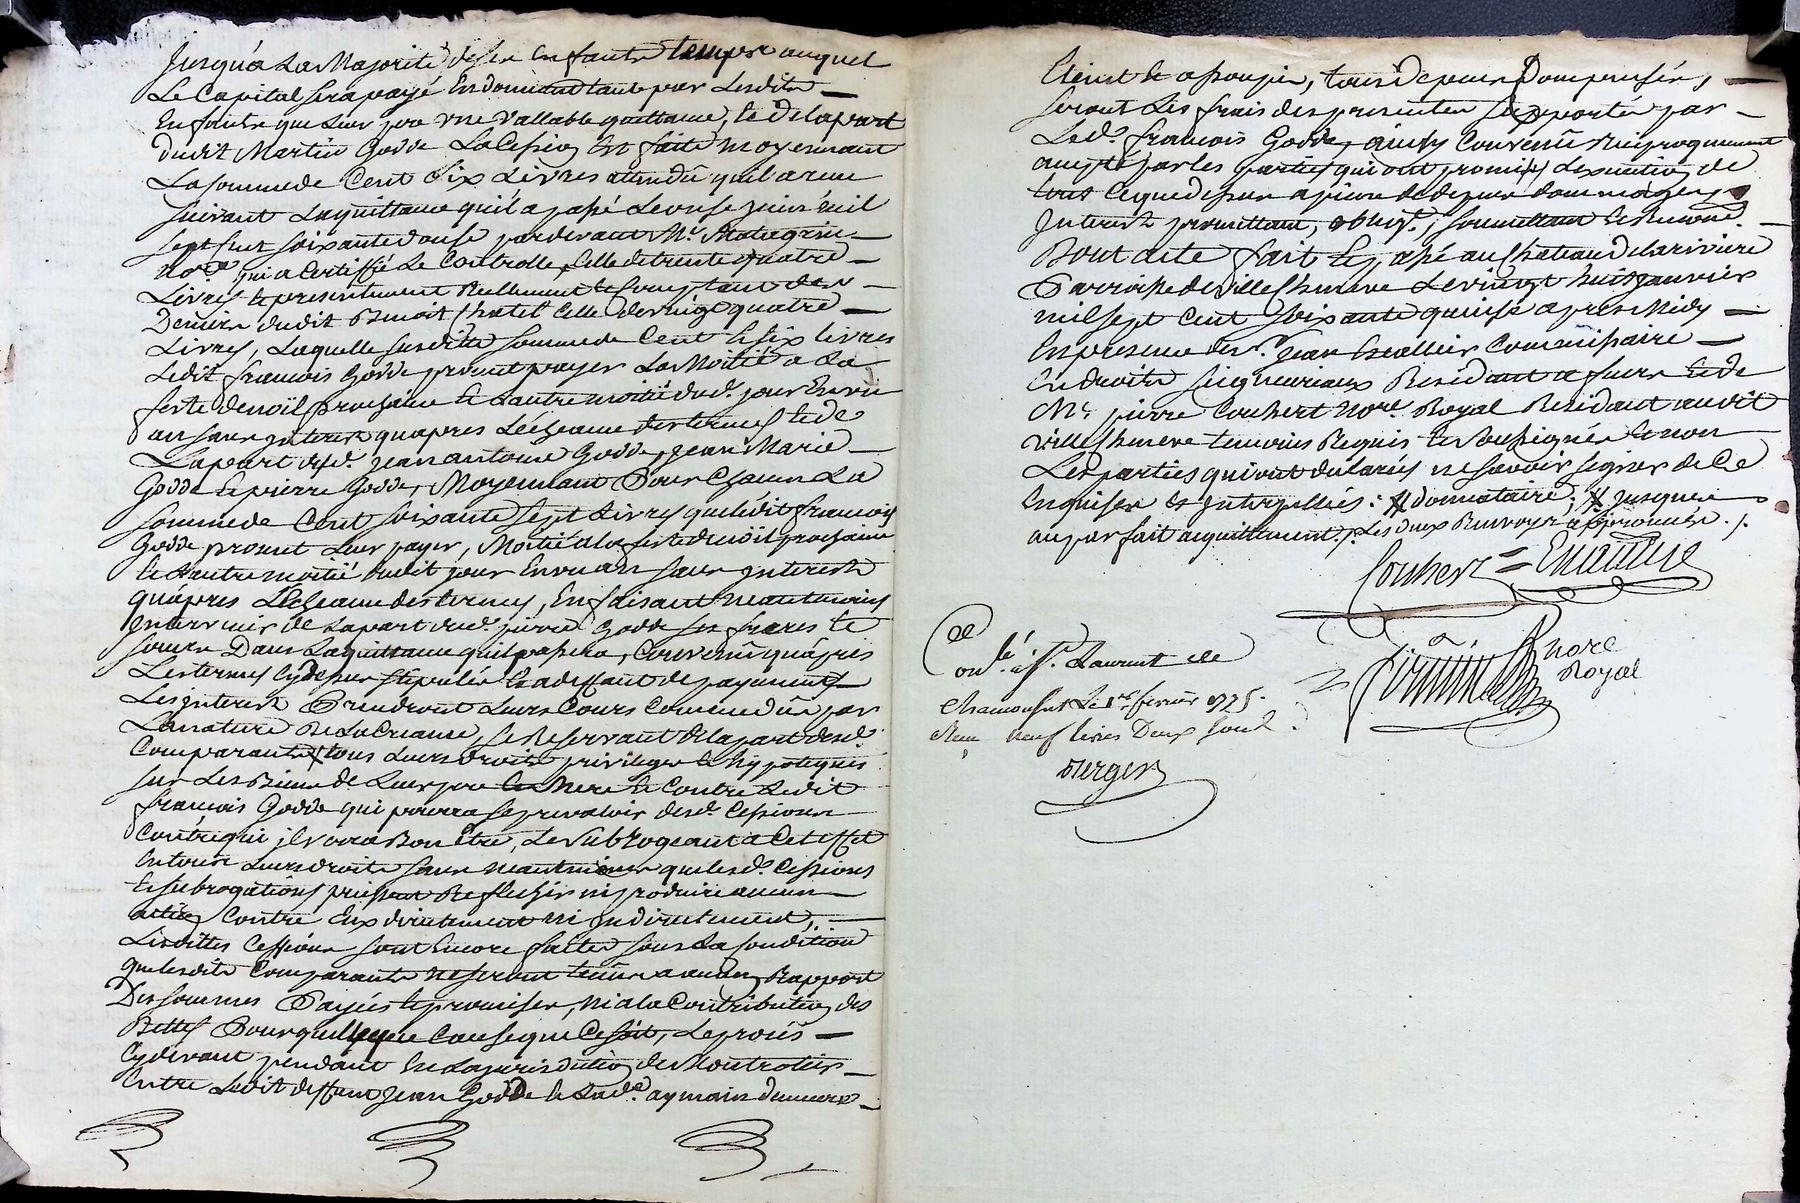 Jusqu'a La Majorité desd. Enfants temps auquel
Le Capital sera payé En donnant tant par Lesdits
Enfants que Leur pere une vallable quittance, Et de la part
dudit Martin Godde La Cession Est faite moyennant
La somme de Cent six Livres attendu quil a reçu
suivant La quittance quil a passé Le onse juin mil
sept Cent soixante douse pardevant Me
nore. qui a Certiffié Le Controlle, Celle de trente quatre
Livres Et presentement Reellement Et Comptant des
Deniers dudit Benoit Chatel Celle de vingt quatre
Livres, Laquelle susditte somme de Cent Et six livres
Ledit francois Godde promet payer La Moitié a La
feste de noïl prochaine Et L'autre moitié dud. jour En un
an sans interest qu'apres L'écheance des termes Et de
La part desd. Jean antoine Godde, Jean Marie
Godde Et pierre Godde, Moyennant Pour Chacun La
somme de Cent soixante sept Livres que Ledit francois
Godde promet Leur payer, Moitié a la feste de noïl prochaine
Et L'autre moitié dudit jour En un an sans interest
qu'apres L'écheance des termes, En faisant neantmoins
intervenir de La part dud. pierre Godde ses freres Et
soeurs Dans La quittance quil passera, Convenû qu'apres
Les termes Cy dessus stipulés Et a deffaut de payement
Les interest Prendront Leurs Cours Comme dûs par
La nature De La Creance, se Reservant de La part desd.
Comparants tous Leurs droits privileges Et hypoteques
sur Les Biens de Leur pere Et Mere Et Contre Ledit
francois Godde qui pourra se prevaloir desd. Cessions
Contre qui il verra Bon Etre, Le subrogeant a Cet effet
En tous Leurs droits sans neantmoins que Lesd. Cessions
Et subrogations puissent Reflechir ni produire aucune
action Contre Eux directement ni indirectement,
Lesdittes Cessions sont Encore faites sous La Condition
que Lesdits Comparants ne seront tenus a aucun Rapport
Des sommes Payées Et promises, ni a la Contribution des
Dettes Pour quelque Cause que Ce soit, Le procès
Cydevant pendant En La jurisdiction de Montrotier
Entre Ledit deffunt Jean Godde Et Lade. aymain demeure
Eteint Et assoupie, tous Depens Compensés,
seront Les frais des presentes supportés par
Led. francois Godde, ainsy Convenû Reciproquement
accepté par les parties qui ont promis L'execution de
tout Ce que dessus a peine de depens dommages
Interests promettant, oblige., soumettant Et Renoncé.
Dont acte fait Et passé au Chateau de la riviere
Parroisse de villechenève Le vingt huit janvier
mil sept Cent soixante quinse apres Midy
En presence de sr. Jean Commissaire
En droits seigneuriaux Residant a Et de
Me. pierre Couhert nore. Royal Residant audit
villechenève temoins Requis Et soussignés Et non
Les parties qui ont declarés ne savoir signer de Ce
Enquises Et Interpellées: # donnataire; # jusques
au parfait acquittement /. Les deux Renvoys approuvés ./.
Couhert =
nore
Royal
Conlé. à St. Laurent de
Chamousset Le 1er. fevrier 1775.
Reçu neuf livres Deux sous